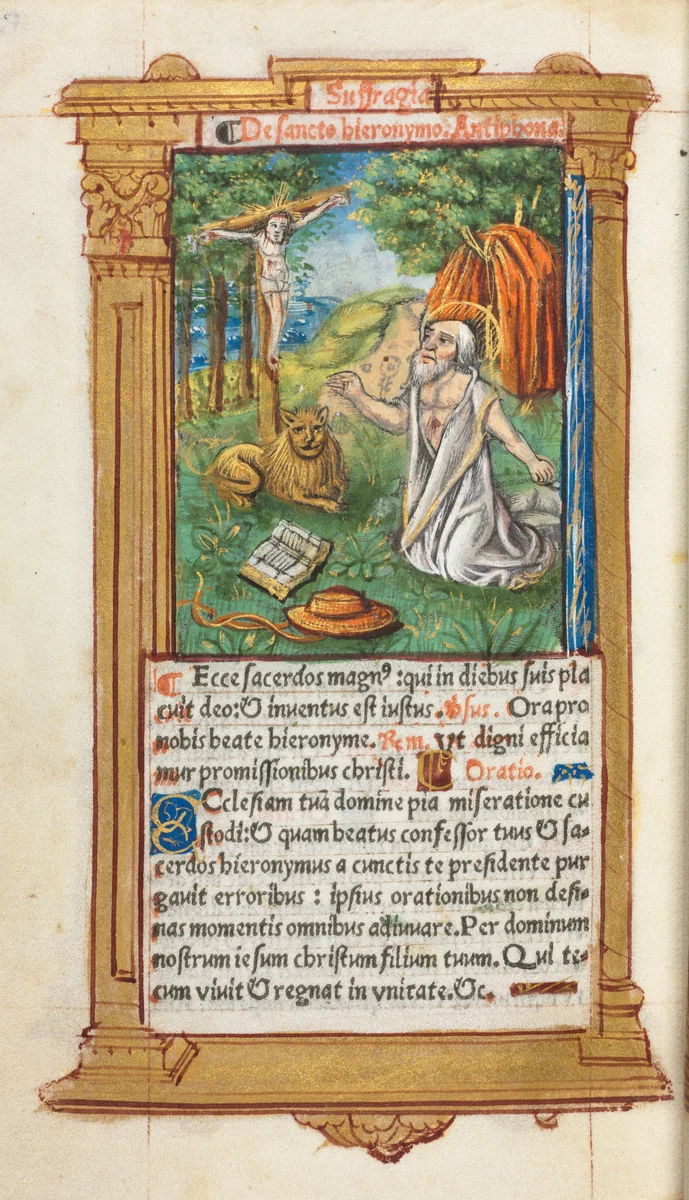 Suffragia
¶ De sancto hieronymo. Antiphona.
¶ Ecce sacerdos magnꝰ : qui in diebus suis pla
cuit deo: & inventus est iustus. ℣sus. Ora pro
nobis beate hieronyme. Rem. Vt digni efficia
mur promissionibus christi. ¶ Oratio.
ECclesiam tuā domine pia miseratione cu
stodi: & quam beatus confessor tuus & sa-
cerdos hieronymus a cunctis te presidente pur
gavit erroribus : ipsius orationibus non desi-
nas momentis omnibus adiuvare. Per dominum
nostrum iesum christum filium tuum. Qui te-
cum vivit & regnat in vnitate. &c.